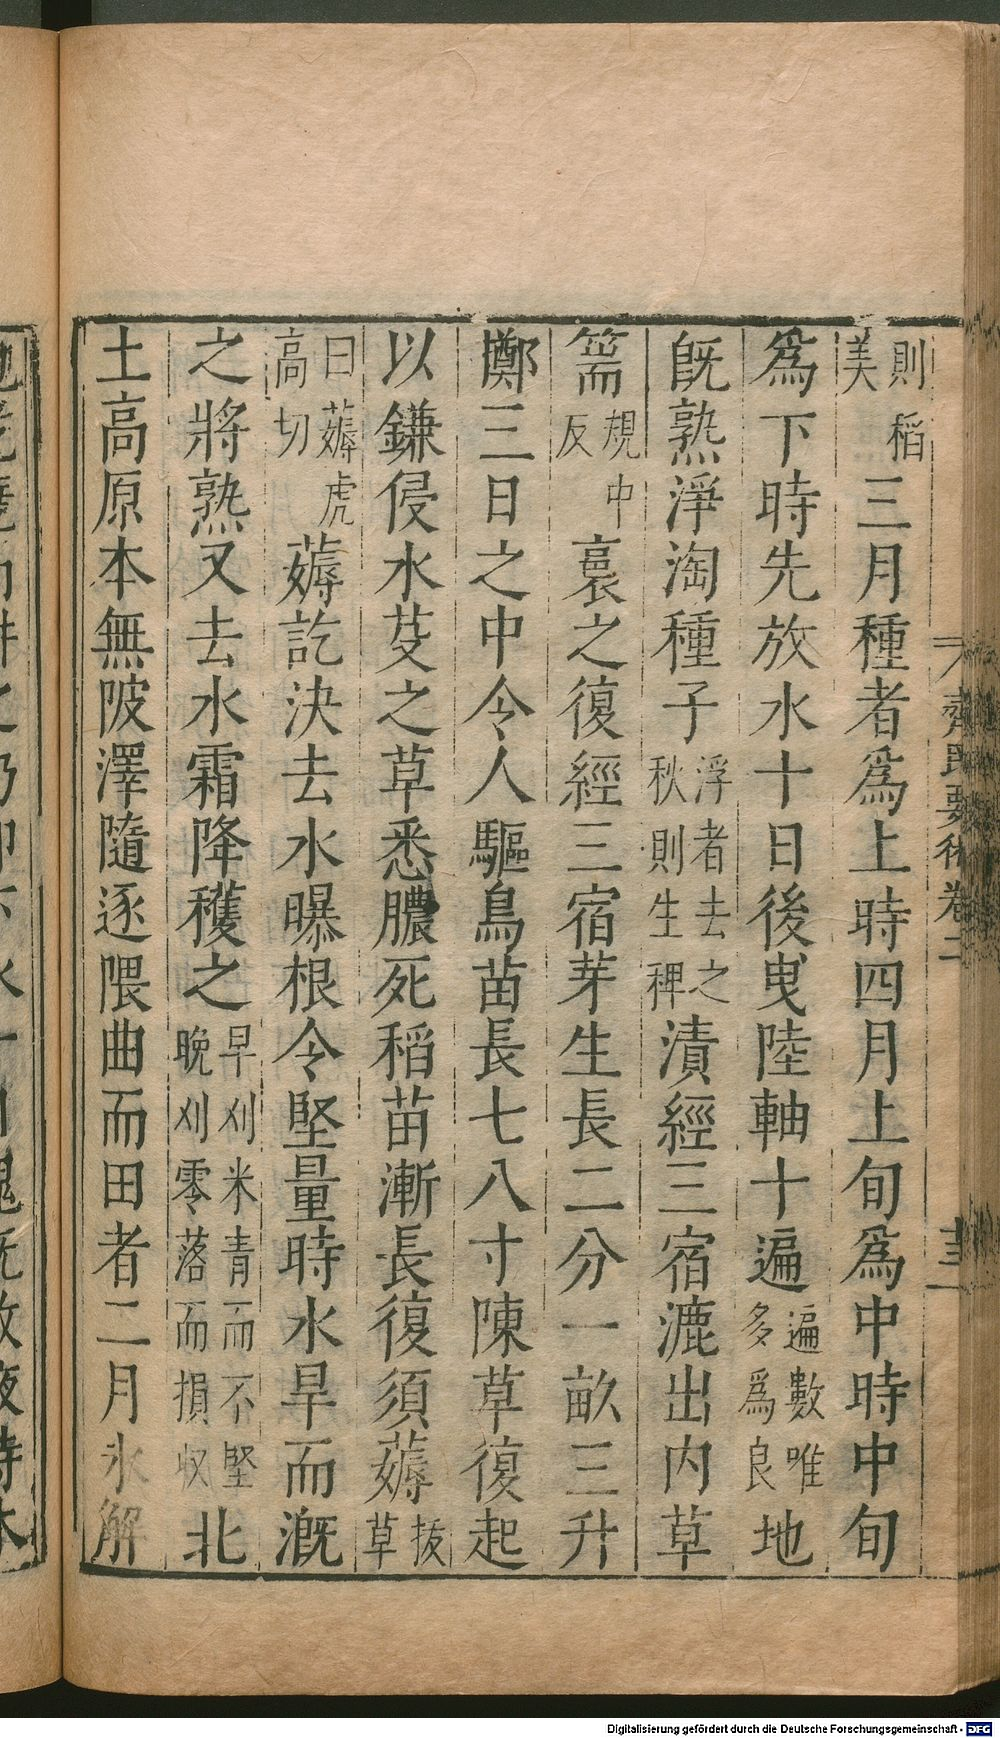 則稻美三月種者爲上時四月上旬爲中時中旬
爲下時先放水十日後曳陸軸十遍遍數唯多爲良地
旣熟淨淘種子浮者去之秋則生稗漬經三宿漉出内草
篅規中反裛之復經三宿芽生長二分一畝三升
擲三日之中令人驅鳥苗長七八寸陳草復起
以鎌侵水芟之草悉膿死稻苗漸長復須薅拔草
曰薅虎高切薅訖決去水曝根令堅量時水旱而漑
之將熟又去水霜降穫之早刈米青而不堅晚刈零落而損収北
土高原本無陂澤隨逐隈曲而田者二月氷解
齊民要術卷二
十三
Digitalisierung gefördert durch die Deutsche Forschungsgemeinschaft - DFG